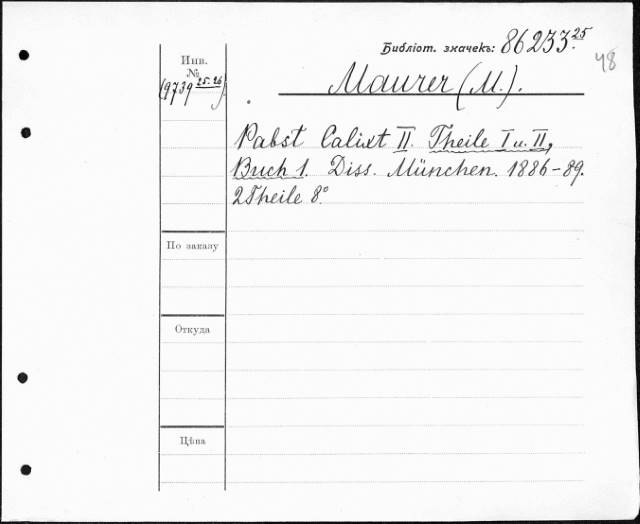 Библіот. значекъ: 86233.25
48
Инв.
№
(9739 25.26)
Maurer (M.).
Pabst Calixt II. Theile I u. II,
Buch 1. Diss. München. 1886-89.
2 Theile 8°.
По заказу
Откуда
Цѣна